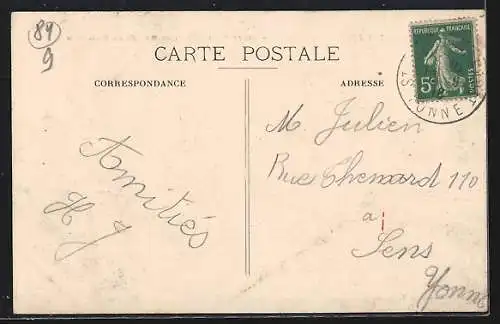 89
9
CARTE POSTALE
CORRESPONDANCE
ADRESSE
REPUBLIQUE FRANÇAISE
5c
POSTES
YONNE
Amitiés
H. J
M. Julien
Rue Chemard 110
a
Sens
Yonne